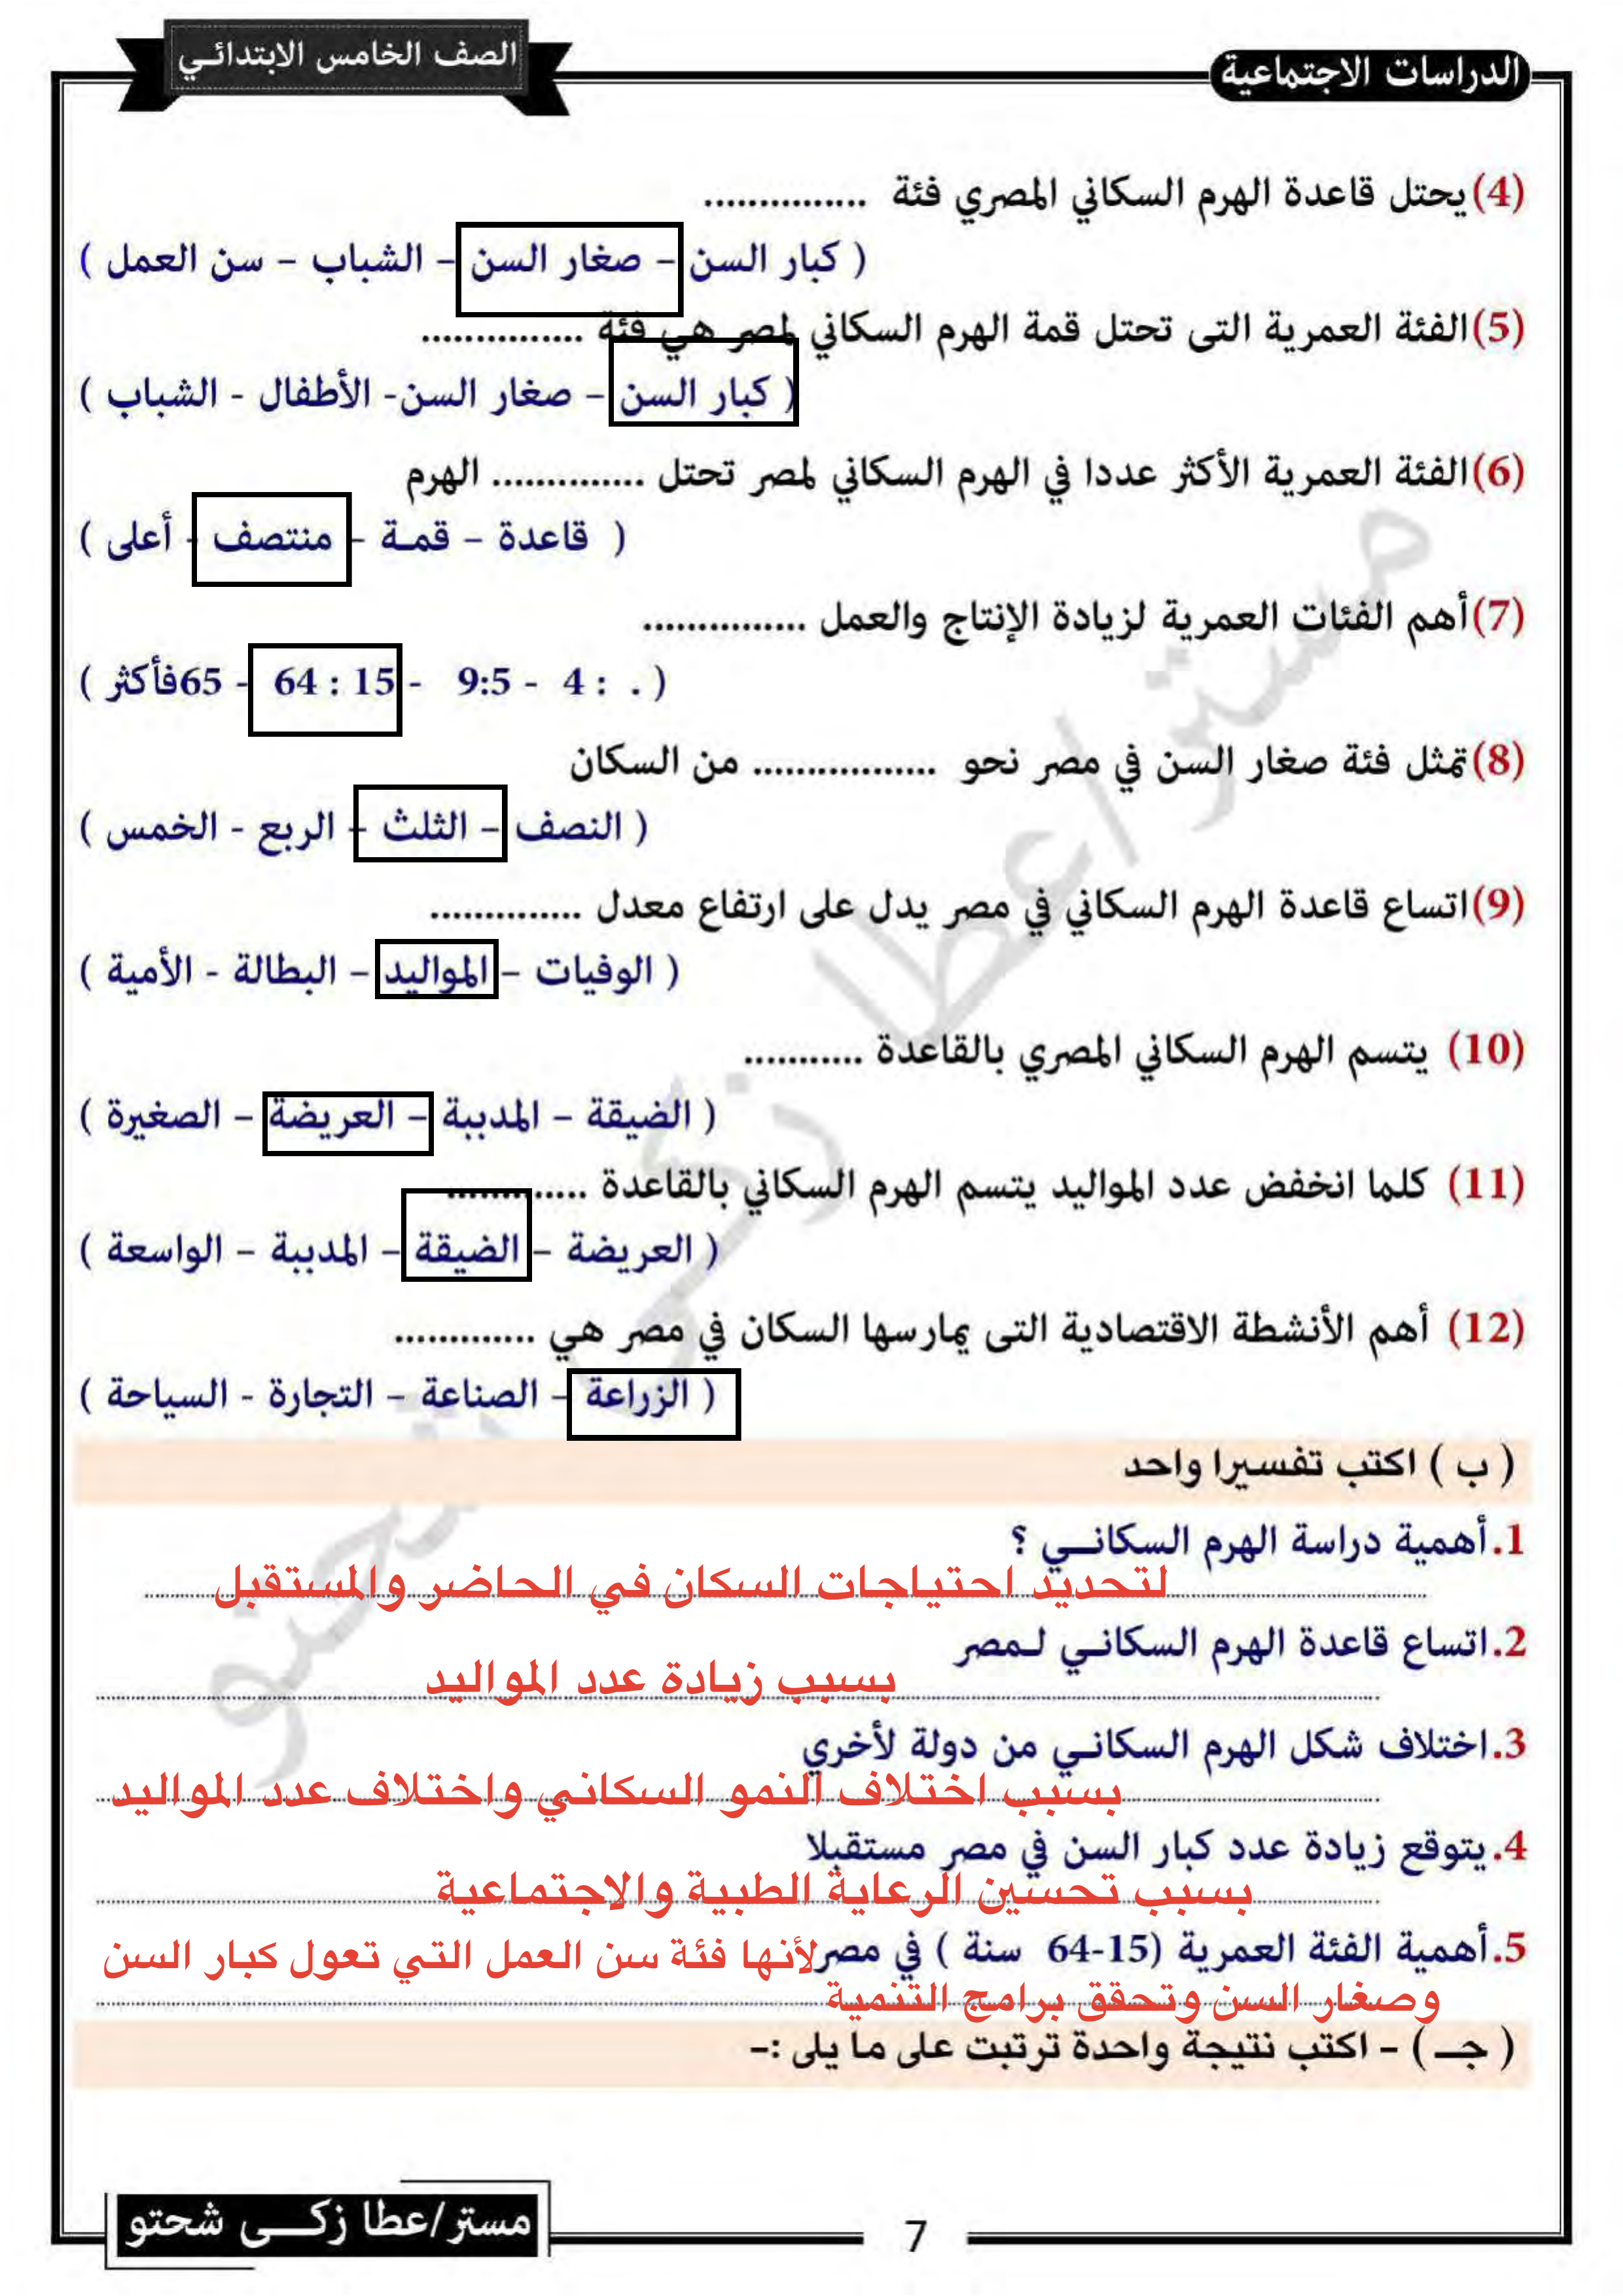 الدراسات الاجتماعية
الصف الخامس الابتدائي
(4) يحتل قاعدة الهرم السكاني المصري فئة ...............
( كبار السن – صغار السن – الشباب – سن العمل )
(5) الفئة العمرية التى تحتل قمة الهرم السكاني لمصر هي فئة ...............
( كبار السن – صغار السن- الأطفال - الشباب )
(6) الفئة العمرية الأكثر عددا في الهرم السكاني لمصر تحتل .............. الهرم
( قاعدة – قمـة – منتصف - أعلى )
(7) أهم الفئات العمرية لزيادة الإنتاج والعمل ...............
( . : 4 - 9:5 - 15 : 64 - 65فأكثر )
(8) تمثل فئة صغار السن في مصر نحو ................. من السكان
( النصف – الثلث – الربع - الخمس )
(9) اتساع قاعدة الهرم السكاني في مصر يدل على ارتفاع معدل ..............
( الوفيات – المواليد – البطالة - الأمية )
(10) يتسم الهرم السكاني المصري بالقاعدة ...........
( الضيقة – المدببة – العريضة – الصغيرة )
(11) كلما انخفض عدد المواليد يتسم الهرم السكاني بالقاعدة .............
( العريضة – الضيقة – المدببة – الواسعة )
(12) أهم الأنشطة الاقتصادية التى يمارسها السكان في مصر هي .............
( الزراعة – الصناعة – التجارة - السياحة )
( ب ) اكتب تفسيرا واحد
1. أهمية دراسة الهرم السكانــي ؟
لتحديد احتياجات السكان في الحاضر والمستقبل
2. اتساع قاعدة الهرم السكانـي لـمصر
بسبب زيادة عدد المواليد
3. اختلاف شكل الهرم السكانـي من دولة لأخري
بسبب اختلاف النمو السكاني واختلاف عدد المواليد
4. يتوقع زيادة عدد كبار السن في مصر مستقبلا
بسبب تحسين الرعاية الطبية والاجتماعية
5. أهمية الفئة العمرية (15-64 سنة ) في مصر لأنها فئة سن العمل التي تعول كبار السن
وصغار السن وتحقق برامج التنمية
( جـ ) – اكتب نتيجة واحدة ترتبت على ما يلى :–
مستر/عطا زكــى شحتو
7
مستر/عطا زكى شحتو